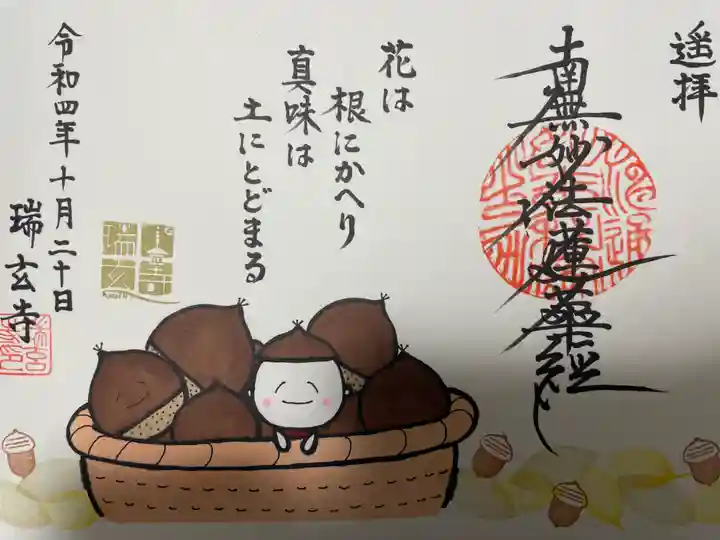 遥拝
南無妙法蓮華経
花は
根にかへり
真味は
土にとどまる
令和四年十月二十日
瑞玄寺
瑞玄